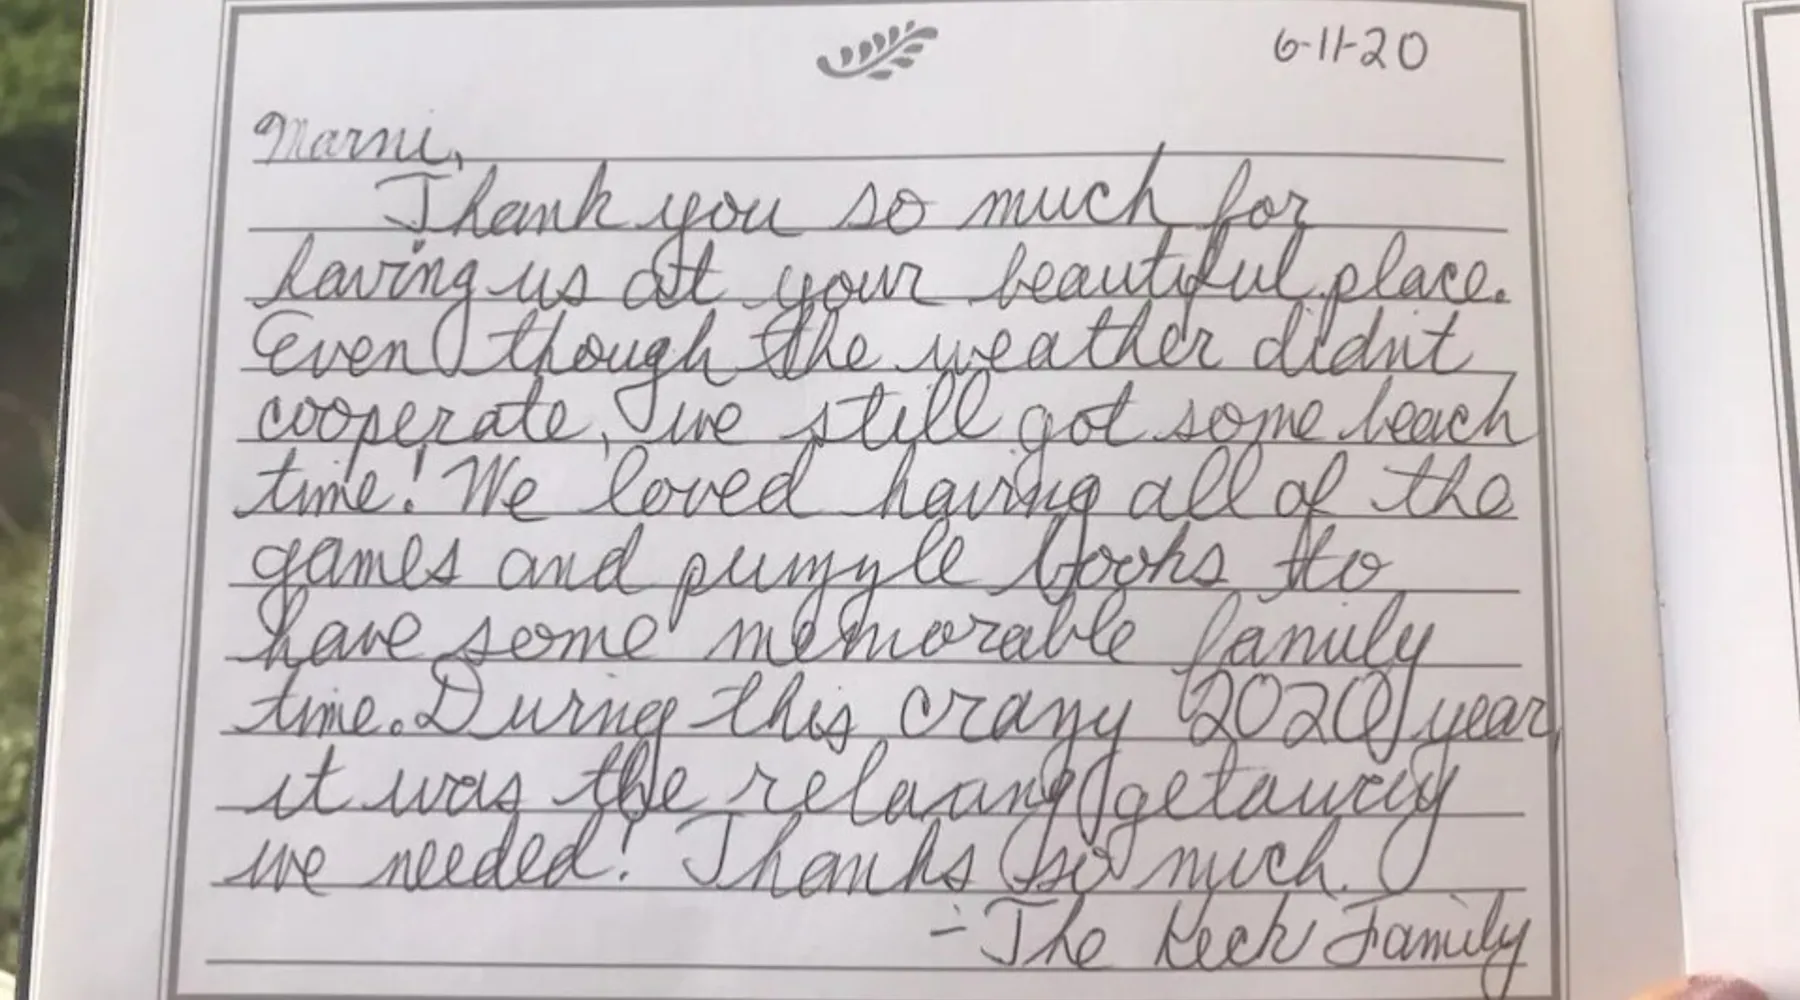 6-11-20
Marni,
Thank you so much for
having us at your beautiful place.
Even though the weather didnt
cooperate, we still got some beach
time! We loved having all of the
games and puzzle books to
have some memorable family
time. During this crazy 2020 year,
it was the relaxing getaway
we needed! Thanks so much.
- The Keck Family